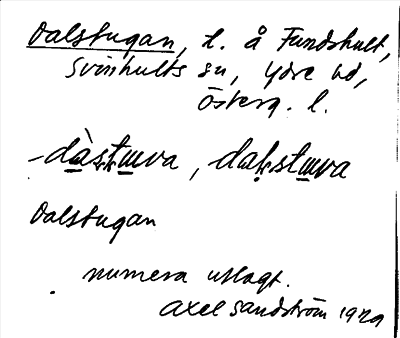 Dalstugan, t. å Fundshult,
Svinhults sn, Ydre hd,
Österg. l.
-dàstɯva, daḷstɯva
Dalstugan
numera utlagt.
Axel Sandström 1929